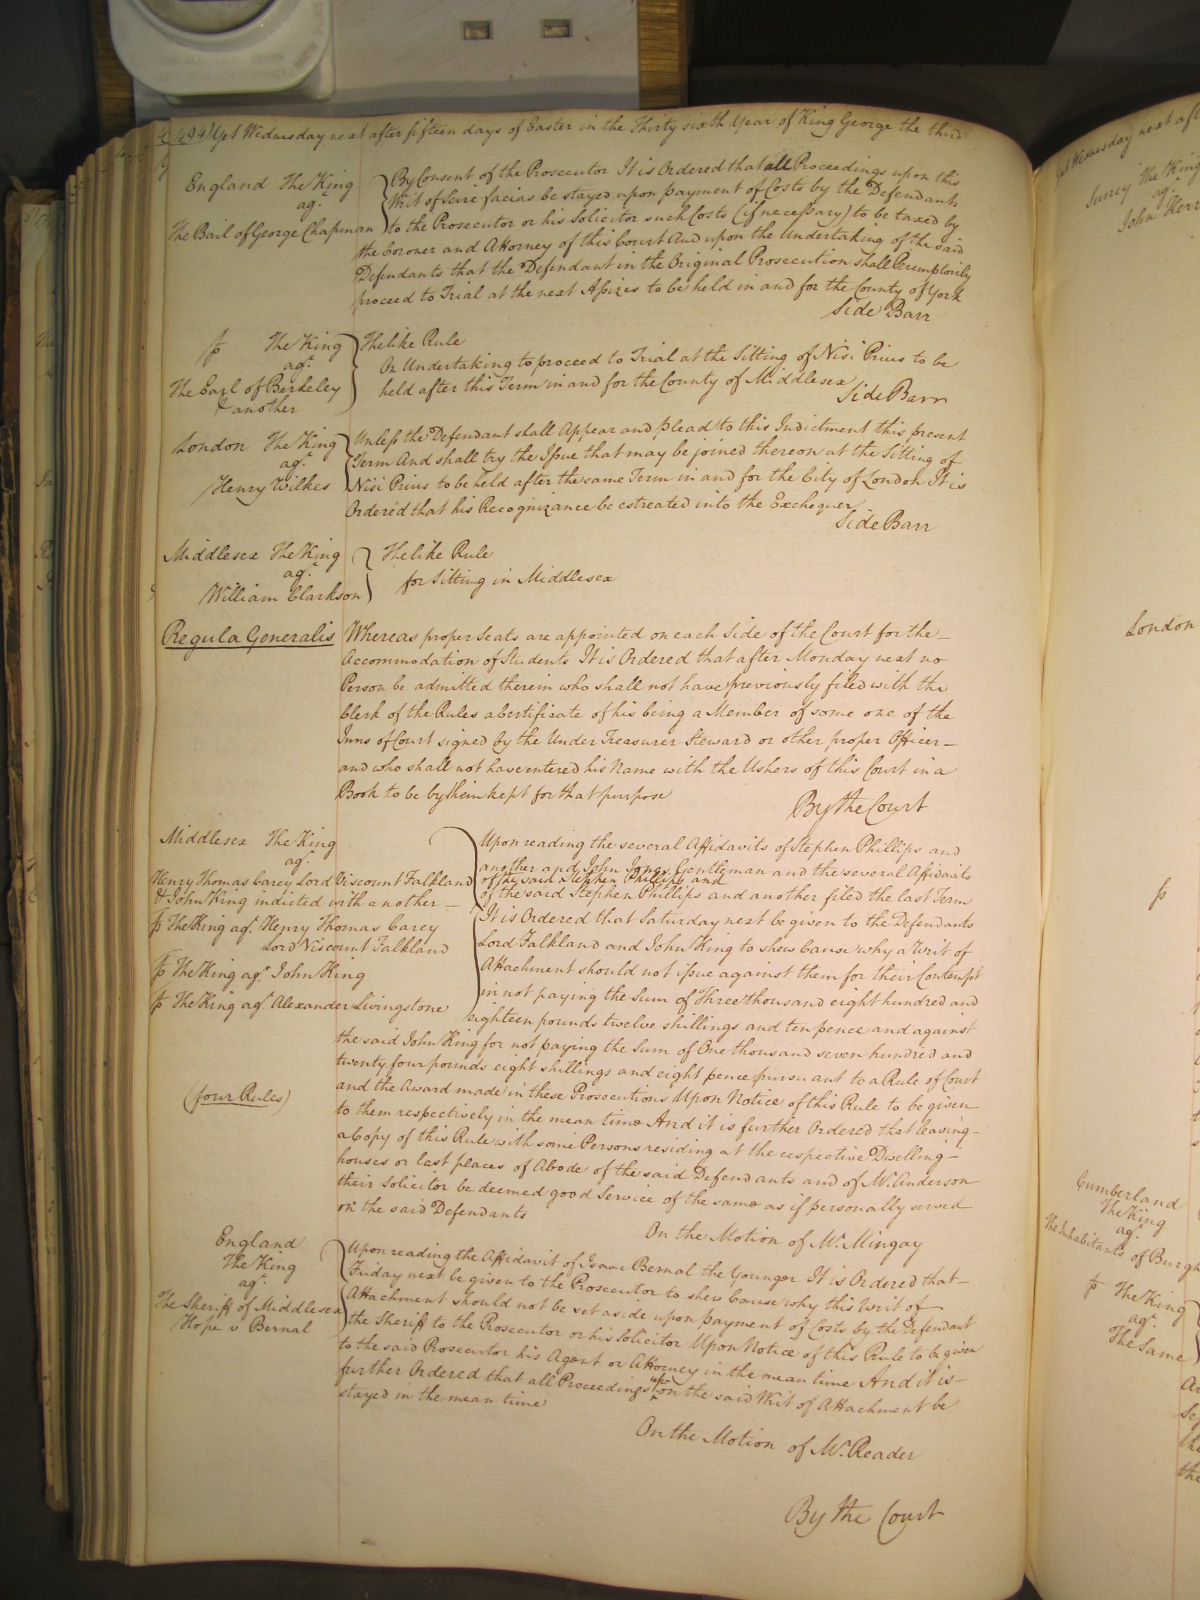 494) Yet Wednesday next after fifteen days of Easter in the Thirty sixth Year of King George the third
England The King
agt
The Bail of George Chapman
By Consent of the Prosecutor It is Ordered that all Proceedings upon this
Writ of Scire facias be stayed upon payment of Costs by the Defendants
to the Prosecutor or his Solicitor such Costs (if necessary) to be taxed by
the Coroner and Attorney of this Court And upon the Undertaking of the said
Defendants that the Defendant in the Original Prosecution shall Peremptorily
proceed to Trial at the next Assizes to be held in and for the County of York
Side Barr
The King
agt
The Earl of Berkeley
& another
The like Rule
On Undertaking to proceed to Trial at the Sitting of Nisi Prius to be
held after this Term in and for the County of Middlesex
Side Barr
London The King
agt
Henry Wilkes
Unless the Defendant shall Appear and plead to this Indictment this present
Term And shall try the Issue that may be joined thereon at the Sitting of
Nisi Prius to be held after the same Term in and for the City of London It is
Ordered that his Recognizance be estreated into the Exchequer
Side Barr
Middlesex The King
agt
William Clarkson
The like Rule
for Sitting in Middlesex
Regula Generalis
Whereas proper Seats are appointed on each Side of the Court for the
Accommodation of Students It is Ordered that after Monday next no
Person be admitted therein who shall not have previously filed with the
Clerk of the Rules a Certificate of his being a Member of some one of the
Inns of Court signed by the Under Treasurer Steward or other proper Officer
and who shall not have entered his Name with the Ushers of this Court in a
Book to be by them kept for that purpose
By the Court
Middlesex The King
agt
Henry Thomas Carey Lord Viscount Falkland
& John King indicted with another
The King agt Henry Thomas Carey
Lord Viscount Falkland
The King agt John King
The King agt Alexander Livingstone
(four Rules)
Upon reading the several Affidavits of Stephen Phillips and
another and John Jones Gentleman and the several Affidavits
of the said Stephen Phillips and
of the said Stephen Phillips and another filed the last Term
It is Ordered that Saturday next be given to the Defendants
Lord Falkland and John King to shew Cause why a Writ of
Attachment should not issue against them for their Contempt
in not paying the Sum of Three thousand eight hundred and
eighteen pounds twelve shillings and ten pence and against
the said John King for not paying the Sum of One thousand seven hundred and
twenty four pounds eight shillings and eight pence pursuant to a Rule of Court
and the Award made in these Prosecutions Upon Notice of this Rule to be given
to them respectively in the mean time And it is further Ordered that leaving
a Copy of this Rule with some Persons residing at the respective Dwelling
houses or last places of Abode of the said Defendants and of Mr. Anderson
their Solicitor be deemed good Service of the same as if personally served
on the said Defendants
On the Motion of Mr. Mingay
England
The King
agt
The Sheriff of Middlesex
Hope v Bernal
Upon reading the Affidavit of Isaac Bernal the Younger It is Ordered that
Friday next be given to the Prosecutor to shew Cause why this Writ of
Attachment should not be set aside upon payment of Costs by the Defendant
the Sheriff to the Prosecutor or his Solicitor Upon Notice of this Rule to be given
to the said Prosecutor his Agent or Attorney in the mean time And it is
further Ordered that all Proceedings upon the said Writ of Attachment be
stayed in the mean time
On the Motion of Mr. Reader
By the Court
Yet Wednesday next after
Surry The King
agt
John Kerr
London
Cumberland
The King
agt
The Inhabitants of Burgh
The King
agt
The Same